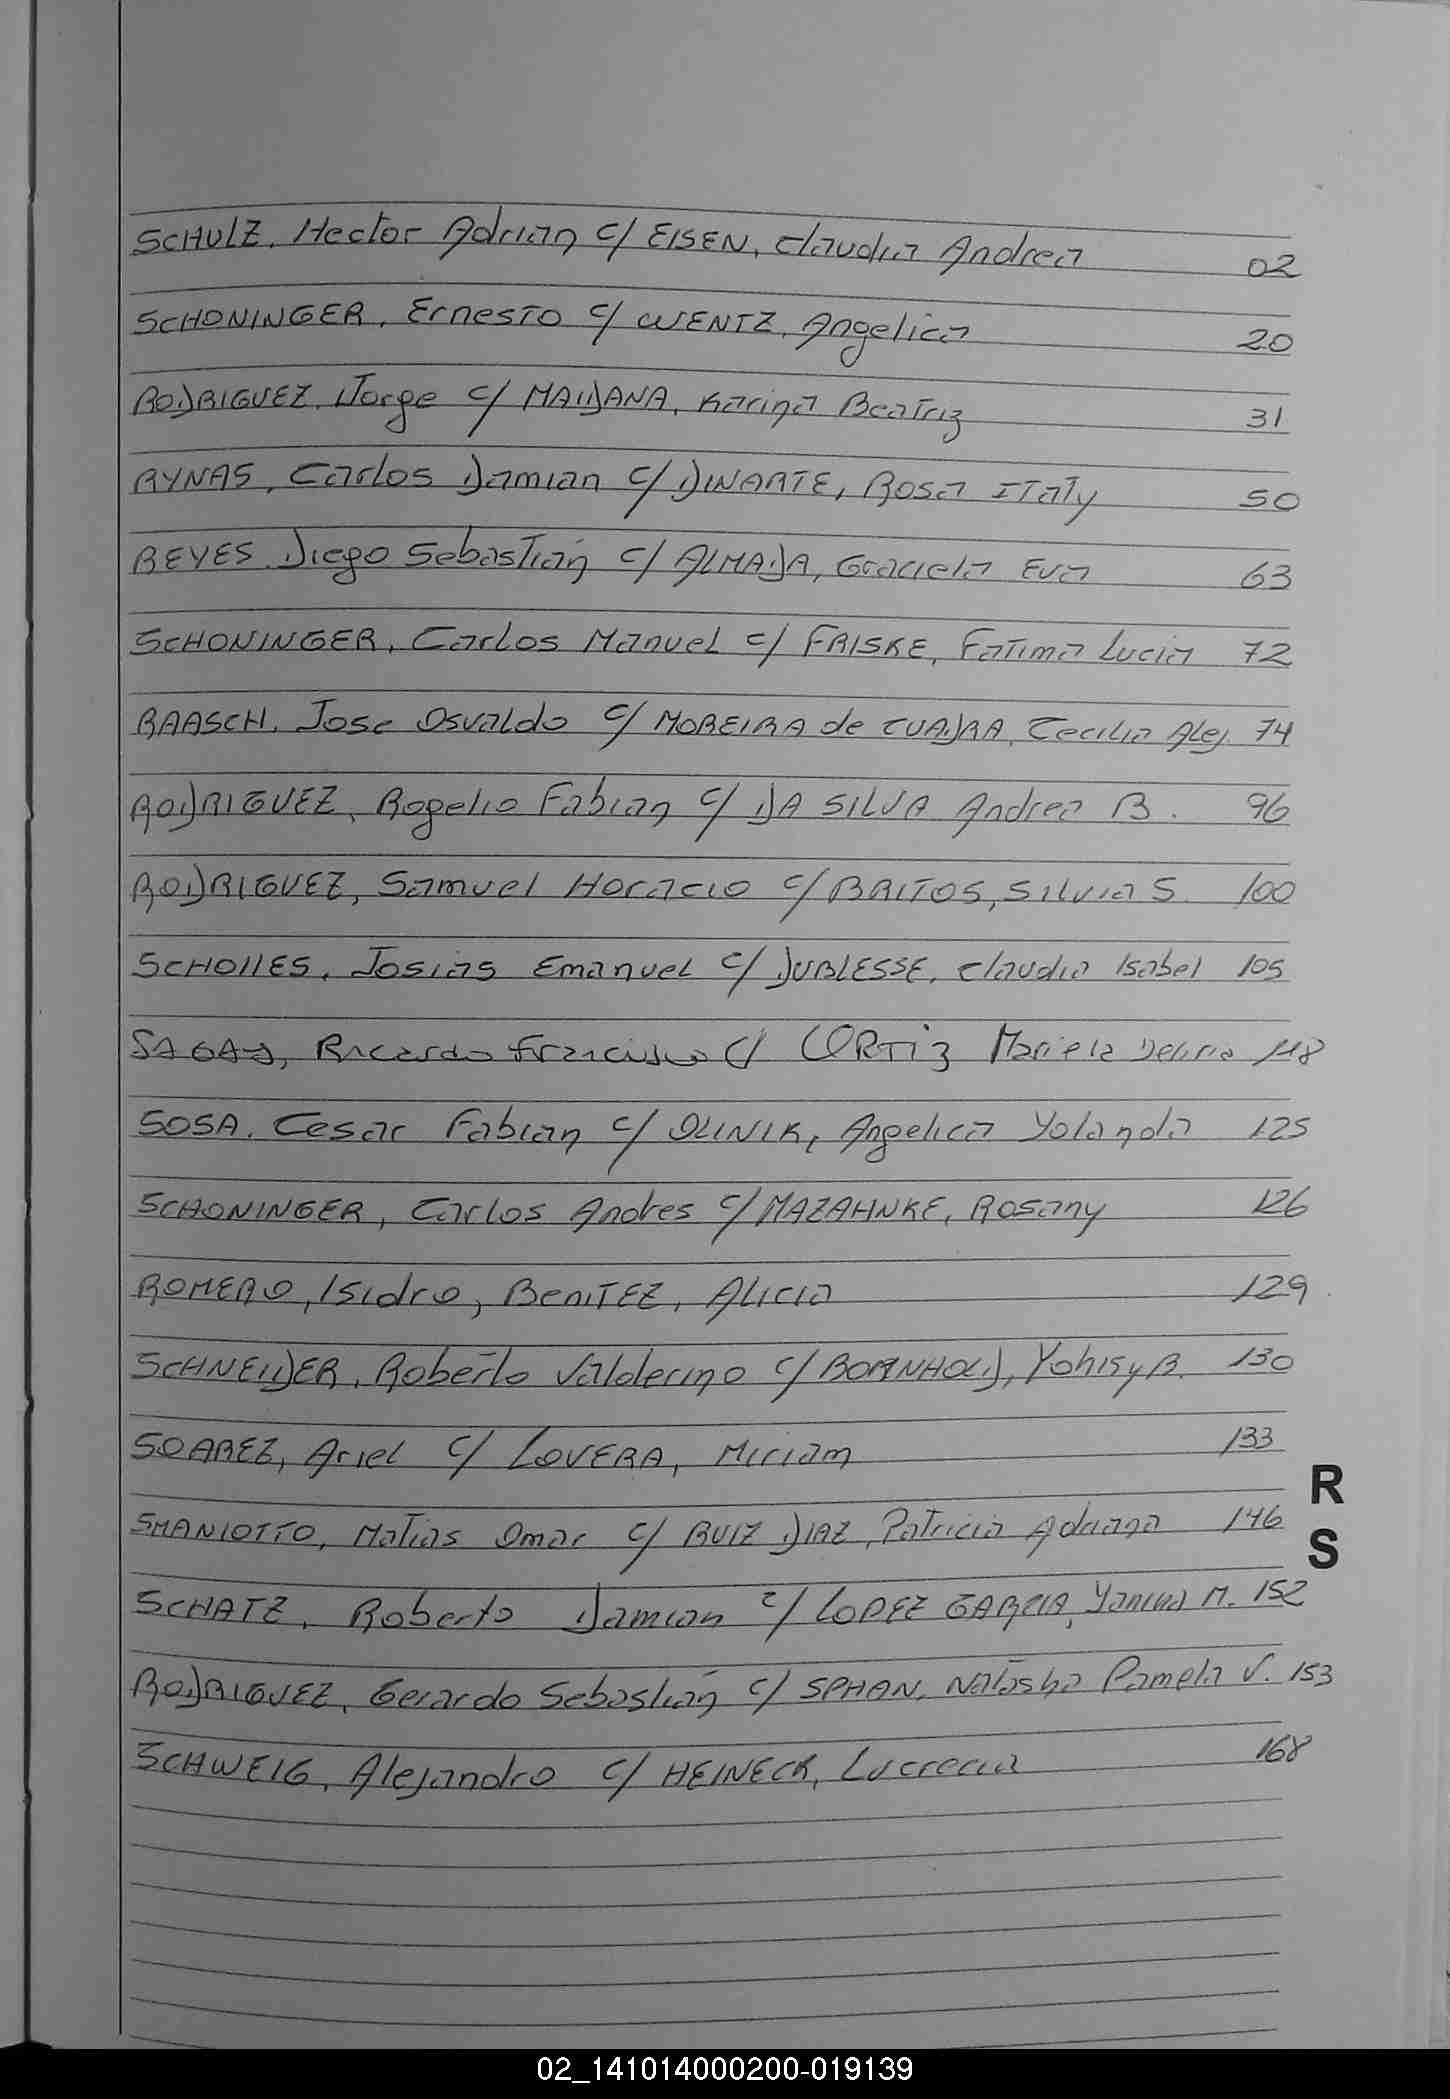 SCHULZ, Hector Adrian c/ EISEN, Claudia Andrea 02
SCHONINGER, Ernesto c/ WENTZ, Angelica 20
RODRIGUEZ, Jorge c/ MAIDANA, Karina Beatriz 31
RYNAS, Carlos Damian c/ DUARTE, Rosa Italy 50
REYES, Diego Sebastián c/ ALMADA, Graciela Eva 63
SCHONINGER, Carlos Manuel c/ FRISKE, Fatima Lucia 72
RAASCH, Jose Osvaldo c/ MOREIRA de CUADRA, Cecilia Alej. 74
RODRIGUEZ, Rogelio Fabian c/ DA SILVA Andrea B. 96
RODRIGUEZ, Samuel Horacio c/ BRITOS, Silvia S. 100
SCHOLLES, Josias Emanuel c/ DUBLESSE, Claudia Isabel 105
Ricardo Francisco c/ ORTIZ Mariela 118
SOSA, Cesar Fabian c/ OLINIK, Angelica Yolanda 125
SCHONINGER, Carlos Andres c/ MAZAHNKE, Rosany 126
ROMERO, Isidro, BENITEZ, Alicia 129
SCHNEIDER, Roberto Valdecino c/ BORNHOLD, B. 130
SOAREZ, Ariel c/ LOVERA, Miriam 133
SMANIOTTO, Matias Omar c/ RUIZ DIAZ, Patricia Adriana 146
SCHATZ, Roberto Damian c/ LOPEZ GARCIA, Yanina M. 152
RODRIGUEZ, Gerardo Sebastián c/ SPHAN, Natasha Pamela V. 153
SCHWEIG, Alejandro c/ HEINECK, Lucrecia 168
R
S
02_141014000200-019139